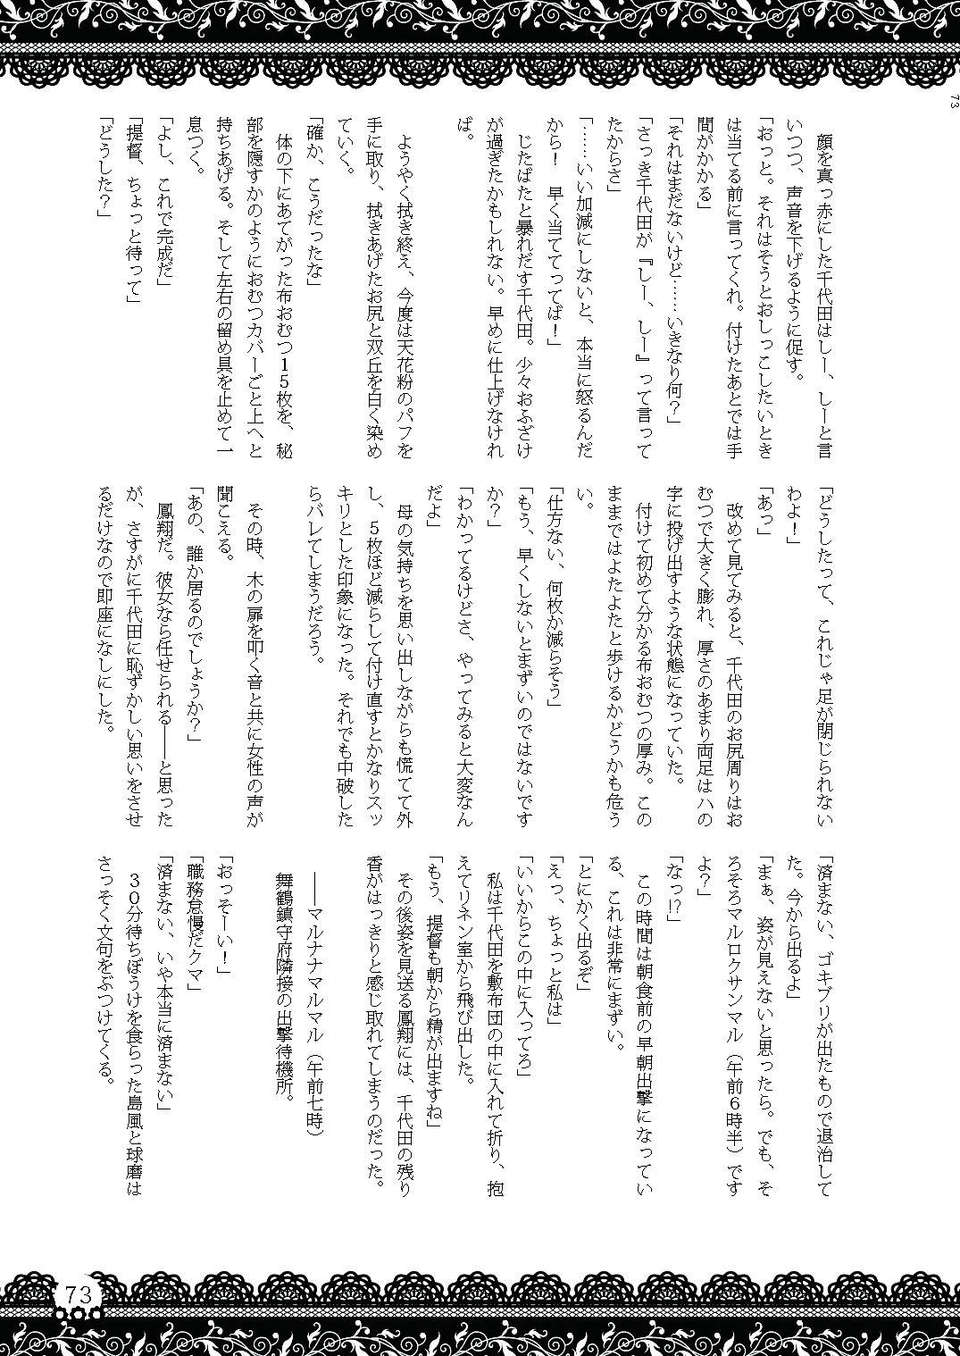 73
　顔を真っ赤にした千代田はしー、しーと言
いつつ、声音を下げるように促す。
「おっと。それはそうとおしっこしたいとき
は当てる前に言ってくれ。付けたあとでは手
間がかかる」
「それはまだないけど……いきなり何？」
「さっき千代田が『しー、しー』って言って
たからさ」
「……いい加減にしないと、本当に怒るんだ
から！　早く当ててってば！」
　じたばたと暴れだす千代田。少々おふざけ
が過ぎたかもしれない。早めに仕上げなけれ
ば。
　ようやく拭き終え、今度は天花粉のパフを
手に取り、拭きあげたお尻と双丘を白く染め
ていく。
「確か、こうだったな」
　体の下にあてがった布おむつ１５枚を、秘
部を隠すかのようにおむつカバーごと上へと
持ちあげる。そして左右の留め具を止めて一
息つく。
「よし、これで完成だ」
「提督、ちょっと待って」
「どうした？」
「どうしたって、これじゃ足が閉じられない
わよ！」
「あっ」
　改めて見てみると、千代田のお尻周りはお
むつで大きく膨れ、厚さのあまり両足はハの
字に投げ出すような状態になっていた。
　付けて初めて分かる布おむつの厚み。この
ままではよたよたと歩けるかどうかも危う
い。
「仕方ない、何枚か減らそう」
「もう、早くしないとまずいのではないです
か？」
「わかってるけどさ、やってみると大変なん
だよ」
　母の気持ちを思い出しながらも慌てて外
し、５枚ほど減らして付け直すとかなりスッ
キリとした印象になった。それでも中破した
らバレてしまうだろう。
　その時、木の扉を叩く音と共に女性の声が
聞こえる。
「あの、誰か居るのでしょうか？」
　鳳翔だ。彼女なら任せられる――と思った
が、さすがに千代田に恥ずかしい思いをさせ
るだけなので即座になしにした。
「済まない、ゴキブリが出たもので退治して
た。今から出るよ」
「まぁ、姿が見えないと思ったら。でも、そ
ろそろマルロクサンマル（午前６時半）です
よ？」
「なっ!?」
　この時間は朝食前の早朝出撃になってい
る、これは非常にまずい。
「とにかく出るぞ」
「えっ、ちょっと私は」
「いいからこの中に入ってろ」
　私は千代田を敷布団の中に入れて折り、抱
えてリネン室から飛び出した。
「もう、提督も朝から精が出ますね」
　その後姿を見送る鳳翔には、千代田の残り
香がはっきりと感じ取れてしまうのだった。
　――マルナナマルマル（午前七時）
　舞鶴鎮守府隣接の出撃待機所。
「おっそーい！」
「職務怠慢だクマ」
「済まない、いや本当に済まない」
　３０分待ちぼうけを食らった島風と球磨は
さっそく文句をぶつけてくる。
73